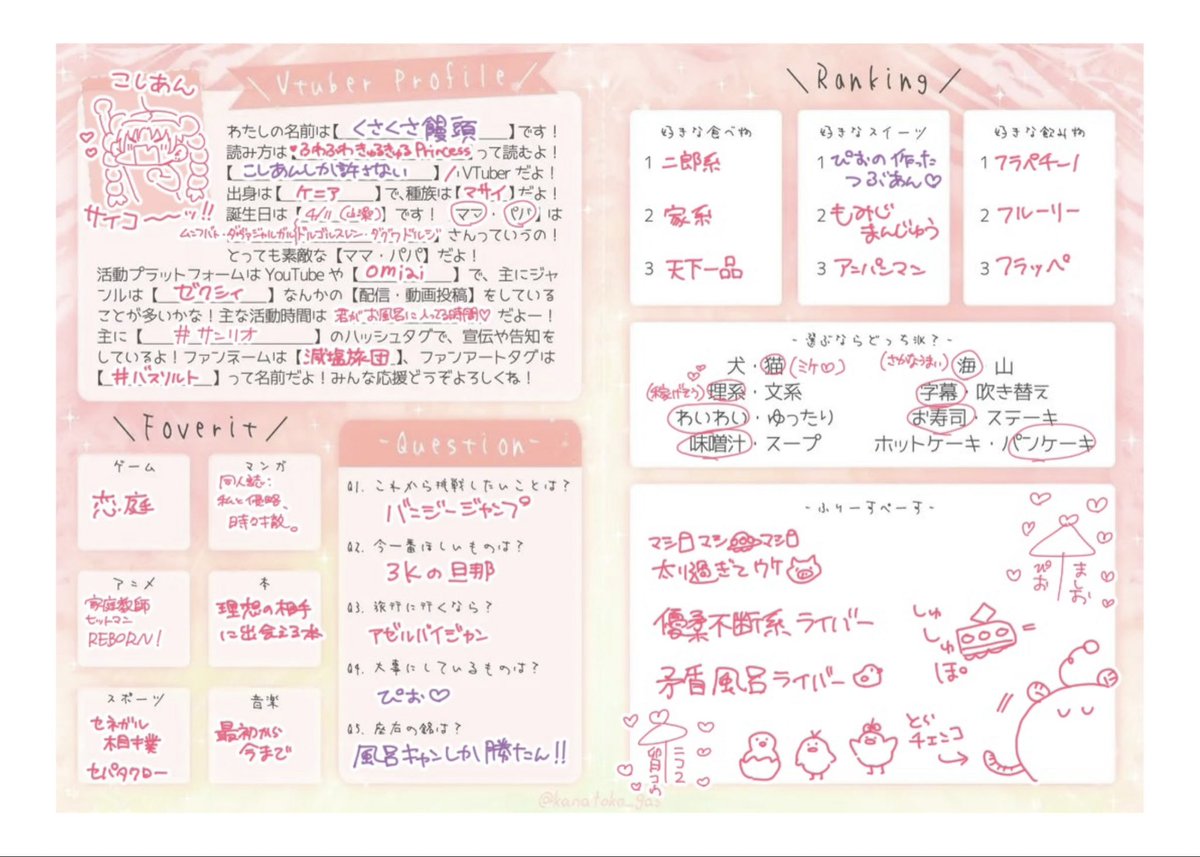 こしあん
サイコ〜〜ッ!!
\ Vtuber Profile /
わたしの名前は【くさくさ饅頭】です!
読み方は♥ふわふわきゅるきゅるPrincessって読むよ!
【こしあんしか許さない】/VTuberだよ!
出身は【ケニア】で、種族は【マサイ】だよ!
誕生日は【4/11(山楽)】です! 【ママ・パパ】は
さんっていうの!
とっても素敵な【ママ・パパ】だよ!
活動プラットフォームはYouTubeや【omiai】で、主にジャ
ンルは【ゼクシィ】なんかの【配信・動画投稿】をしている
ことが多いかな!主な活動時間は 君がお風呂に入ってる時間♡ だよー!
主に【#サンリオ】のハッシュタグで、宣伝や告知を
しているよ!ファンネームは【減塩旅団】、ファンアートタグは
【#バスソルト】って名前だよ!みんな応援どうぞよろしくね!
\ Foverit /
ゲーム
恋庭
マンガ
同人誌:
私と侵略、
時々寸散。
アニメ
家庭教師
ヒットマン
REBORN!
本
理想の相手
に出会える本
スポーツ
セネガル
相撲
セパタクロー
音楽
最初から
今まで
-Question-
Q1. これから挑戦したいことは?
バンジージャンプ
Q2. 今一番ほしいものは?
3Kの旦那
Q3. 旅行に行くなら?
アゼルバイジャン
Q4. 大事にしているものは?
ぴお♡
Q5. 座右の銘は?
風呂キャンしか勝たん!!
\ Ranking /
好きな食べ物
1 二郎系
2 家系
3 天下一品
好きなスイーツ
1 ぴおの作った
つぶあん♡
2 もみじ
まんじゅう
3 アンパンマン
好きな飲み物
1 フラペチーノ
2 フルーリー
3 フラッペ
-選ぶならどっち派?-
犬・猫(ミケ♡)
(さかなうまい) 海 山
(稼げそう) 理系・文系
字幕・吹き替え
わいわい・ゆったり
お寿司・ステーキ
味噌汁・スープ
ホットケーキ・パンケーキ
-ふりーすぺーす-
マシ マシ マシ
太り過ぎてウケ
優柔不断系ライバー
矛盾風呂ライバー
ぴお
ましお
しゅ
しゅ
ぽ。
とら
チェンコ
ニコ2
@kanatoka_gas